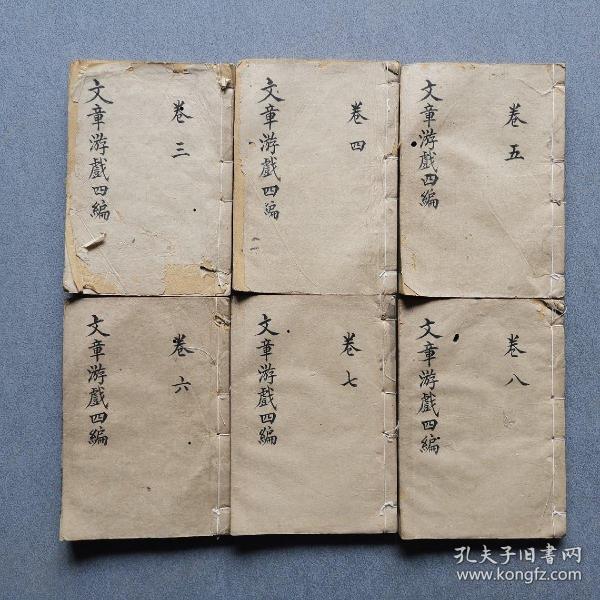 文章游戲四編
卷三
文章游戲四編
卷四
文章游戲四編
卷五
文章游戲四編
卷六
文章游戲四編
卷七
文章游戲四編
卷八
孔夫子旧书网
www.kongfz.com